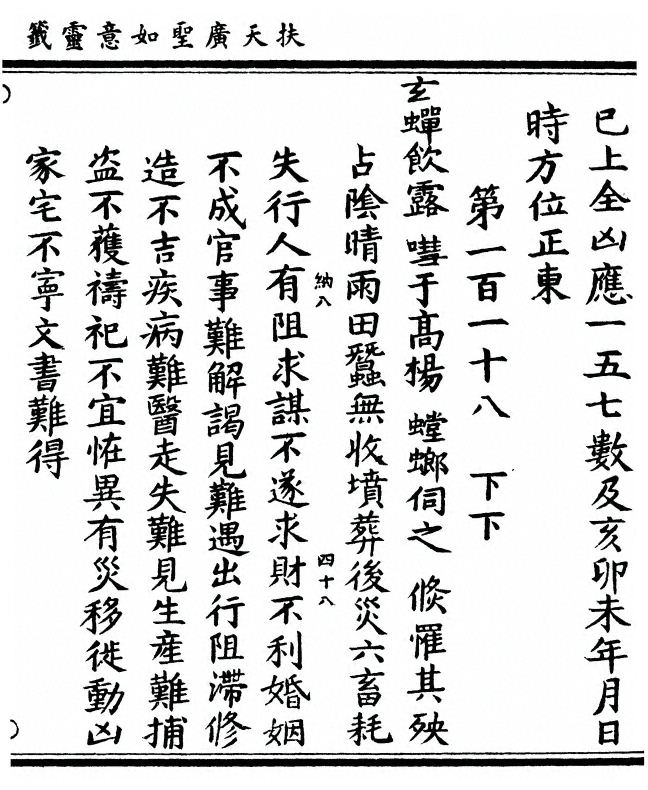 扶天廣聖如意靈籤
已上全凶應一五七數及亥卯未年月日
時方位正東
第一百一十八 下下
玄蟬飲露 嘒于高楊 螳螂伺之 倐罹其殃
占陰晴雨田蠶無收墳葬後災六畜耗
失行人有阻求謀不遂求財不利婚姻
納八
四十八
不成官事難解謁見難遇出行阻滯修
造不吉疾病難醫走失難見生產難捕
盗不獲禱祀不宜恠異有災移徙動凶
家宅不寧文書難得